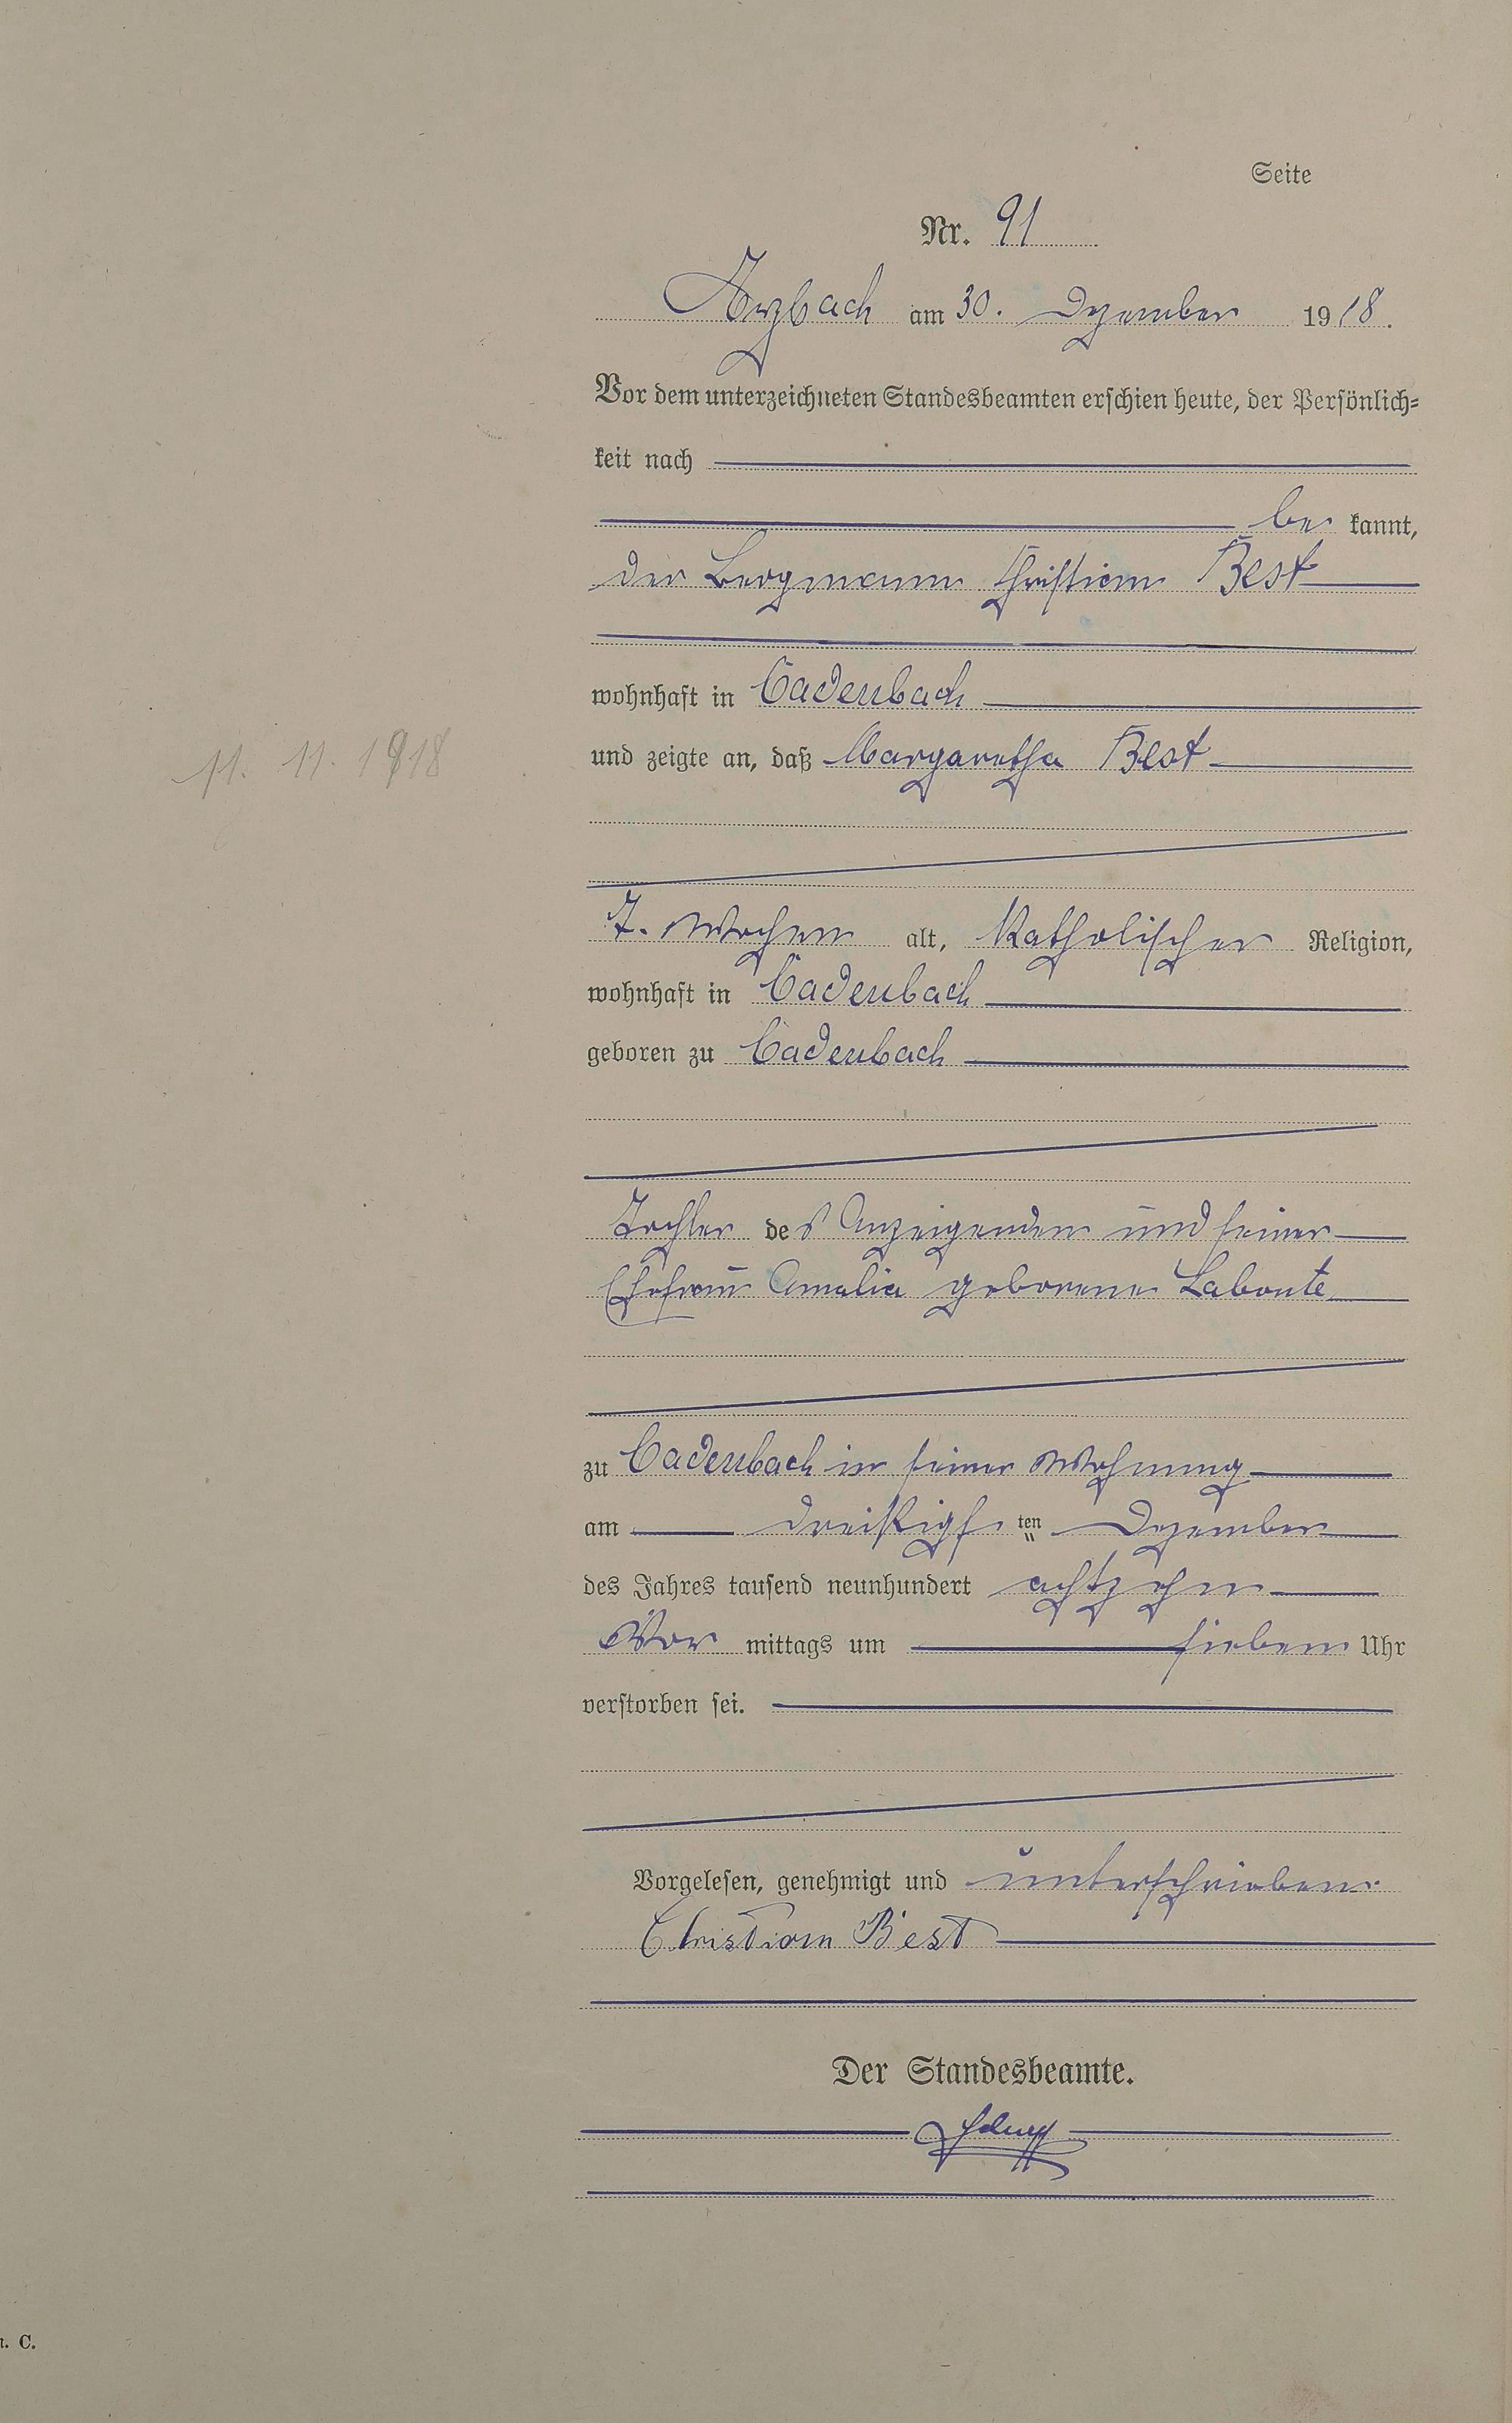 Seite
Nr. 91
Arzbach am 30. Dezember 1918.
Vor dem unterzeichneten Standesbeamten erschien heute, der Persönlich=
keit nach
be kannt,
der Bergmann Christian Best
wohnhaft in Cadenbach
und zeigte an, daß Margaretha Best
11. 11. 1918
7. Wochen alt, Katholischer Religion,
wohnhaft in Cadenbach
geboren zu Cadenbach
Tochter des Anzeigenden und seiner
Ehefrau Amalia geborene Labonte
zu Cadenbach in seiner Wohnung
am dreißigs ten Dezember
des Jahres tausend neunhundert achtzehn
Vor mittags um sieben Uhr
verstorben sei.
Vorgelesen, genehmigt und unterschrieben.
Christian Best
Der Standesbeamte.
C.